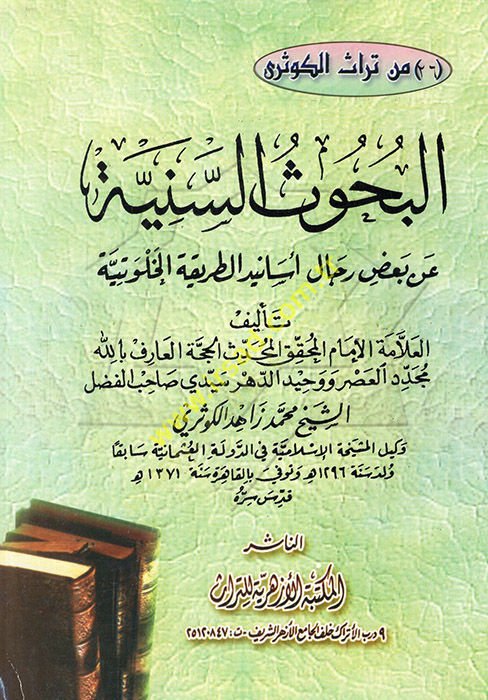 (٢٦) من تراث الكوثرى
البُحُوثُ السَّنِيَّة
عَن بَعضِ رِجَال أسَانيد الطريقة الخَلوَتيَّة
تَأليفُ
العَلَّامَة الإمَام المحقِق المحدِّث الحجَّة العَارِف بِالله
مُجَدِّد العَصْر وَوَحِيد الدّهْر سَيِّدي صَاحِب الفَضل
الشَّيخ مُحَمَّد زَاهِد الكَوثَري
وَكيل المشيَخة الإسْلَاميَّة في الدَّولَة العُثمَانيَّة سَابقًا
وُلدَ سَنَة ١٢٩٦هـ وَتوفيَ بِالقَاهِرة سَنَة ١٣٧١ هـ
قدِّسَ سِرُّه
الناشر
المكتبة الأزهرية للتراث
٩ درب الأتراك خلف الجامع الأزهر الشريف - ت: ٢٥١٢٠٨٤٧